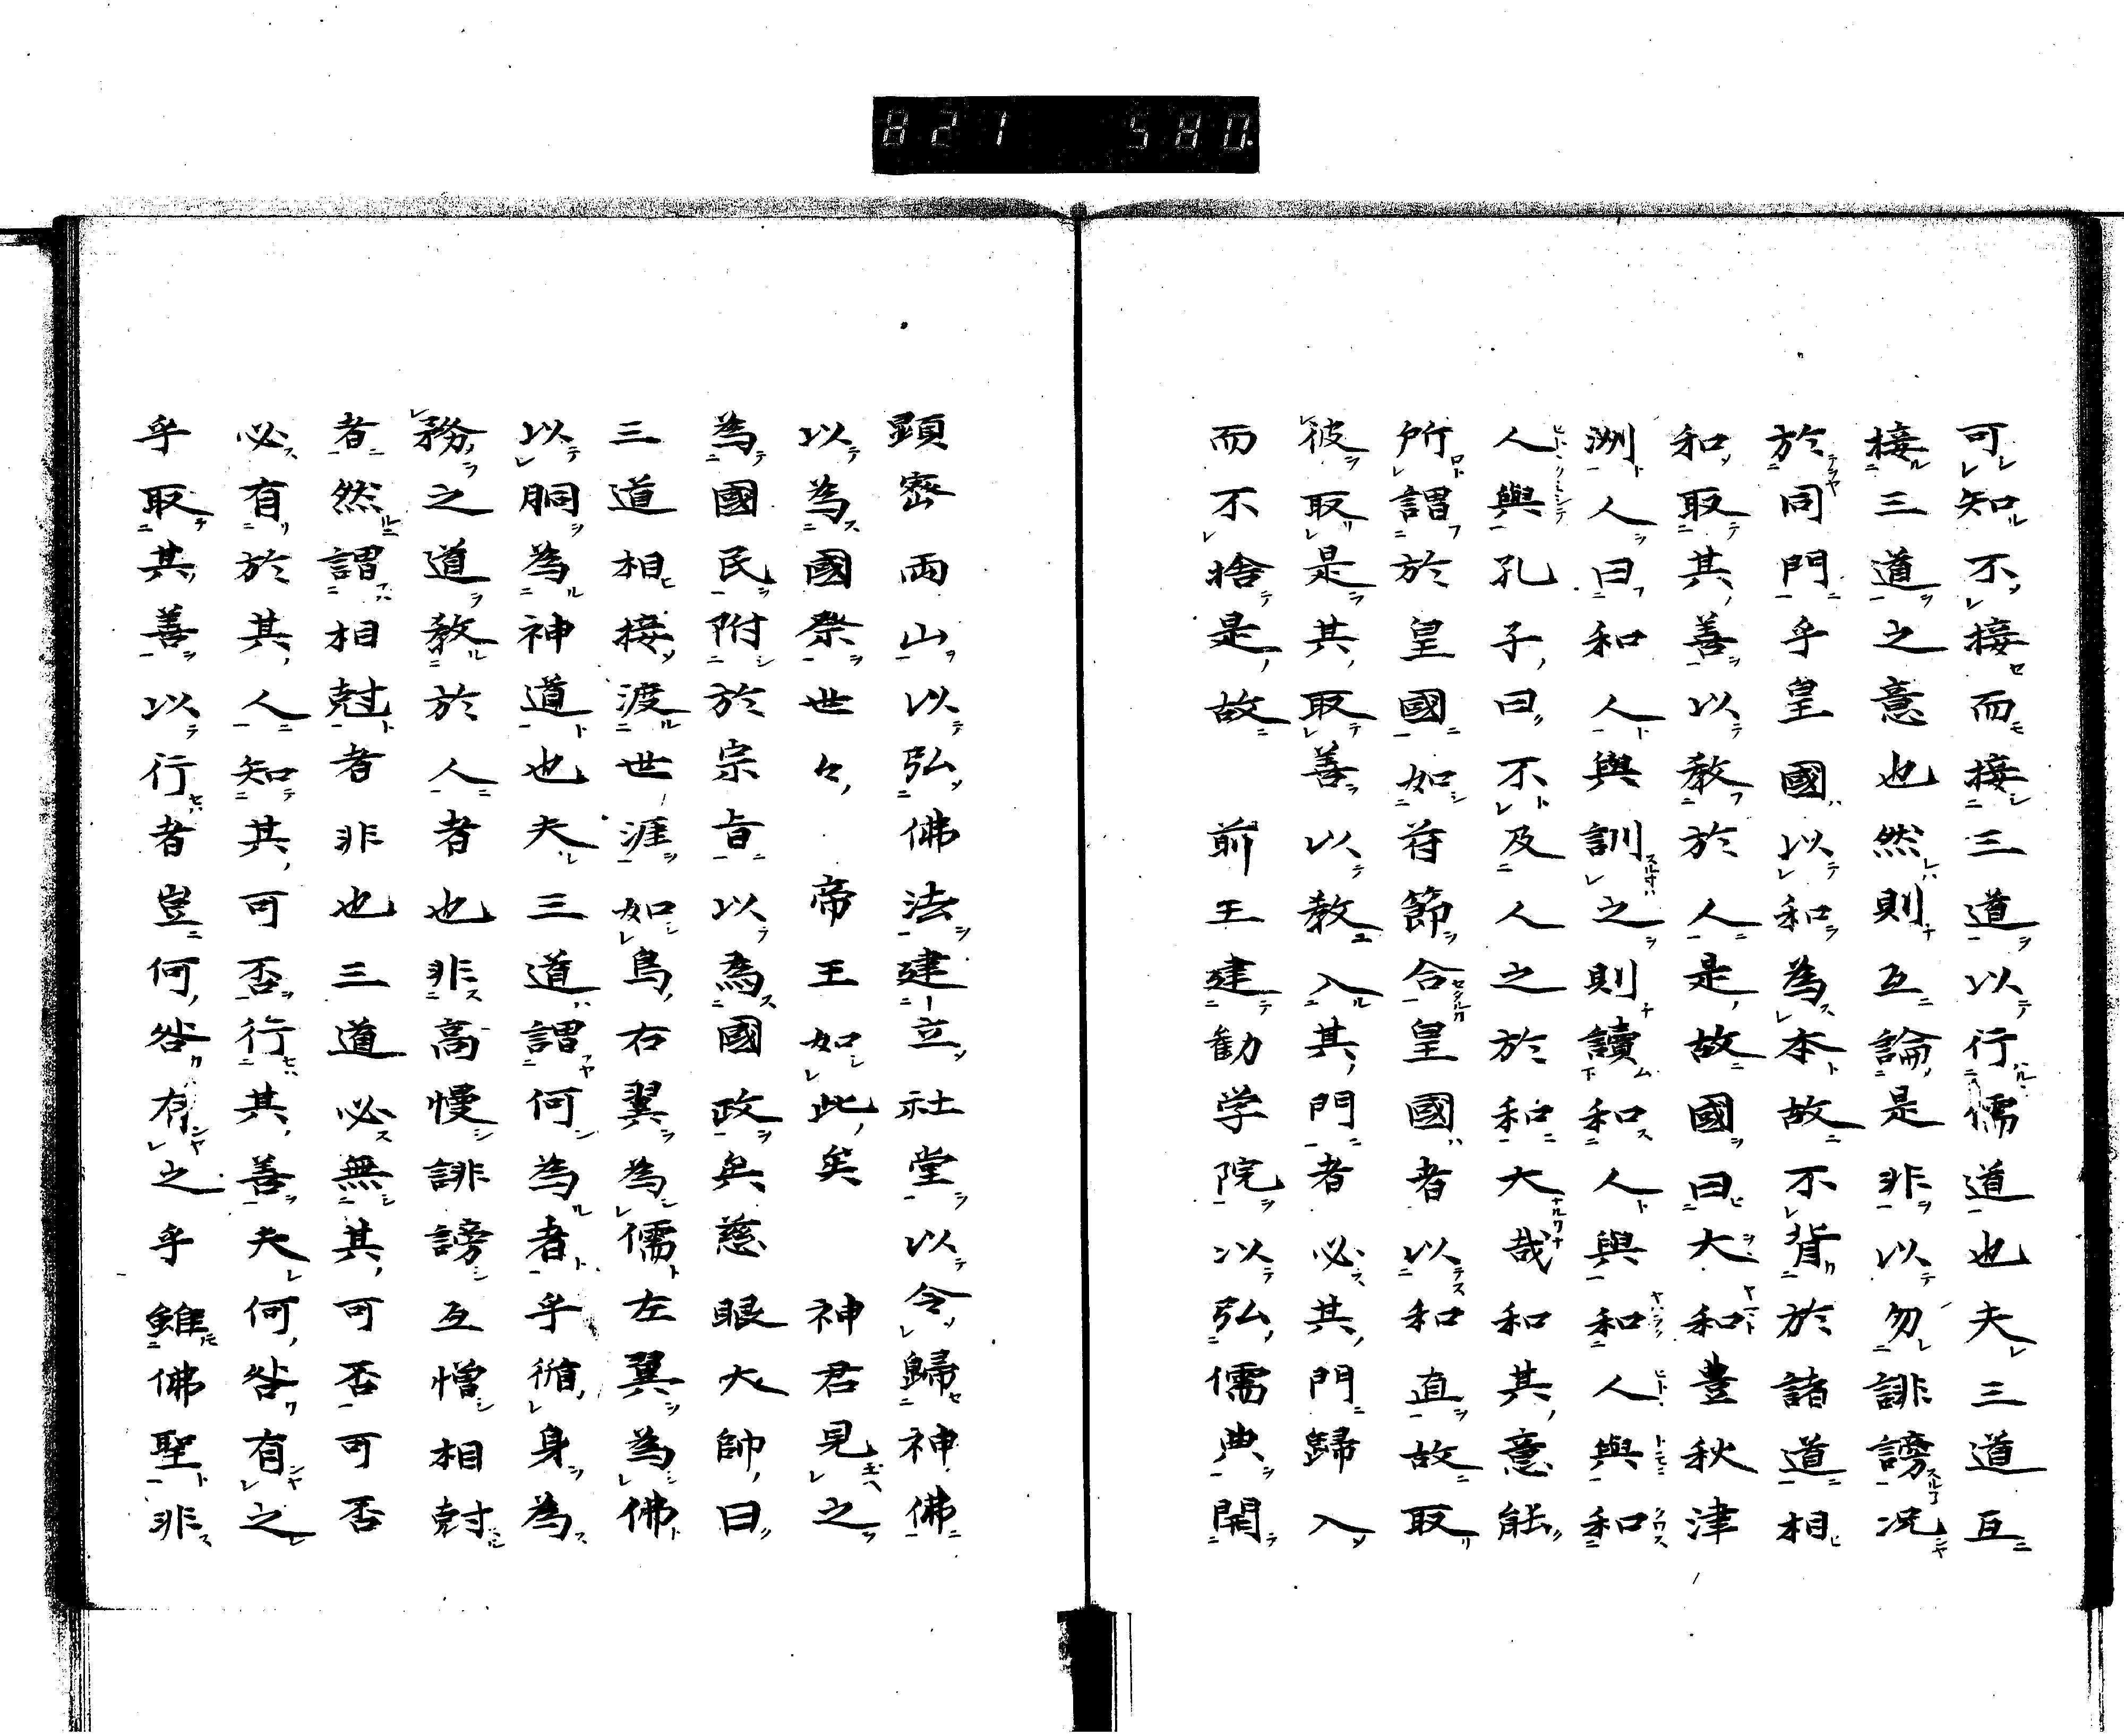 821 580.
可知不接而接三道以行儒道也夫三道互
接三道之意也然則互論是非以勿誹謗况
於同門乎皇國以和為本故不背於諸道相
和取其善以教於人是故國曰大和豊秋津
洲人曰和人與訓之則讀和人與和人與和
人與孔子曰不及人之於和大哉和其意能
所謂於皇國如符節合皇國者以和直故取
彼取是其取善以教入其門者必其門歸入
而不捨是故　前王建勧学院以弘儒典開
顕密両山以弘佛法建立社堂以令歸神佛
以為國祭世々　帝王如此矣　神君見之
為國民附於宗旨以為國政矣慈眼大師曰
三道相接渡世涯如鳥右翼為儒左翼為佛
以胴為神道也夫三道謂何為者乎脩身為
務之道教於人者也非高慢誹謗互憎相尅
者然謂相尅者非也三道必無其可否可否
必有於其人知其可否行其善夫何咎有之
乎取其善以行者豈何咎有之乎雖佛聖非